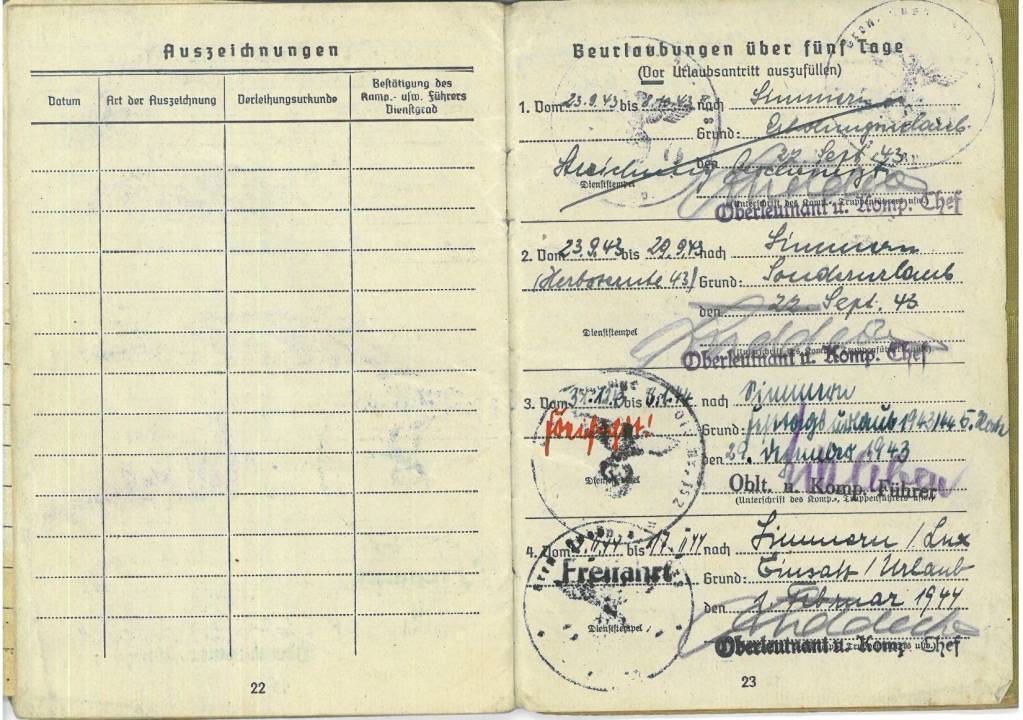 Auszeichnungen
Datum
Art der Auszeichnung
Verleihungsurkunde
Bestätigung des
Komp.- usw. Führers
Dienstgrad
22
Beurlaubungen über fünf Tage
(Vor Urlaubsantritt auszufüllen)
1. Vom 23.9.43 bis nach Simmern
Grund: Erholungsurlaub
den 22. Sept. 43
Streichung
Dienststempel
(Unterschrift des Komp.-, Truppenführers usw.)
Oberleutnant u. Komp. Chef
2. Vom 23.9.43 bis 29.9.43 nach Simmern
(Herbsternte 43) Grund: Sonderurlaub
den 22. Sept. 43
Dienststempel
Oberleutnant u. Komp. Chef
3. Vom bis nach Simmern
Grund: 1943/44
den 29. Dezember 1943
Dienststempel
Oblt. u. Komp. Führer
(Unterschrift des Komp.-, Truppenführers usw.)
4. Vom bis nach Simmern / Lux
Freifahrt
Grund: Einsatz / Urlaub
den Februar 1944
Dienststempel
Oberleutnant u. Komp. Chef
23